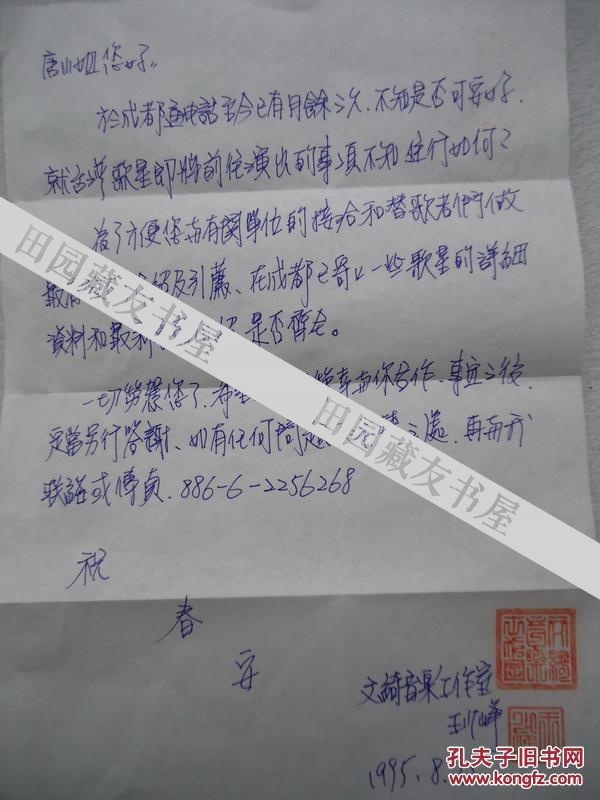 唐小姐您好。
於成都通電話至今已有月餘之久．不知是否可安好．
就台灣歌星即將前往演出的事項不知進行如何？
為了方便您與有關單位的接洽和替歌者們做
最 及引薦、在成都已寄上一些歌星的詳細
資料和最 是否齊全。
一切勞慧您了． 與你合作．事定之後．
定當另行答謝、如有任何問 之處．再與我
联話或傳真．886-6-2256268
祝
春
安
文綺音樂工作室
峰
1995.8.
田园藏友书屋
田园藏友书屋
孔夫子旧书网
www.kongfz.com